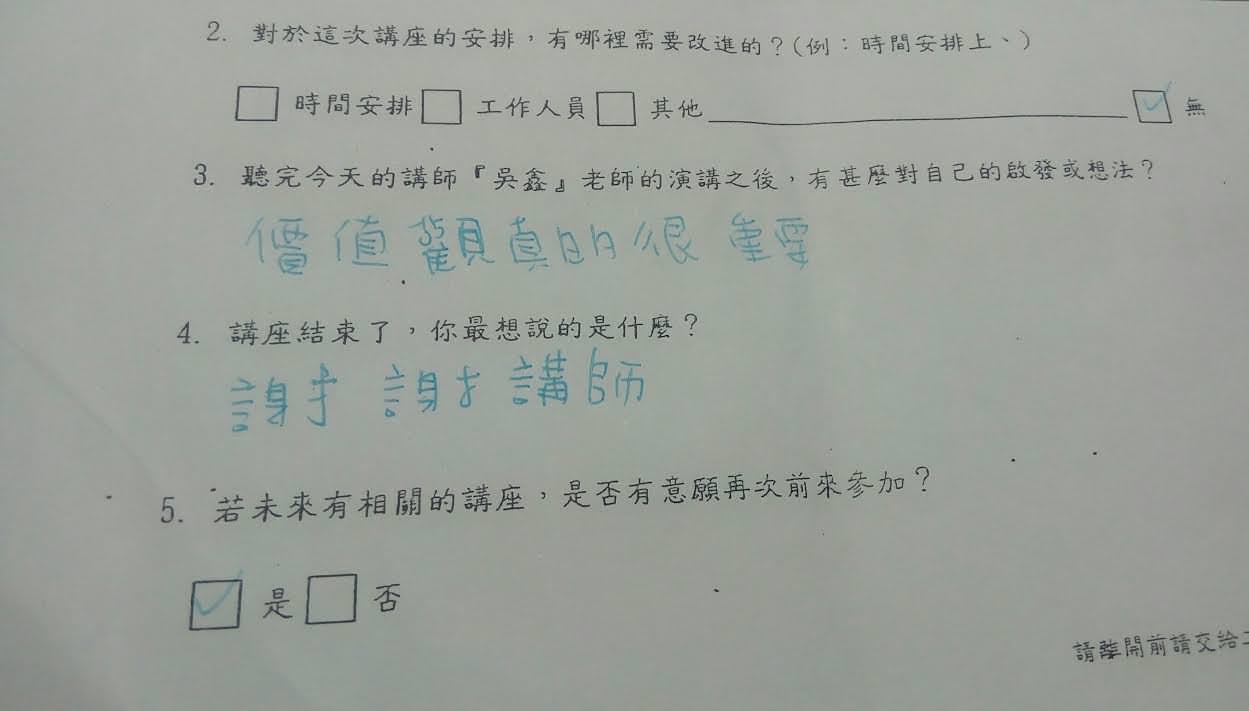 2. 對於這次講座的安排，有哪裡需要改進的？(例：時間安排上、)
□ 時間安排 □ 工作人員 □ 其他____________________ ☑ 無
3. 聽完今天的講師『吳鑫』老師的演講之後，有甚麼對自己的啟發或想法？
價值觀真的很重要
4. 講座結束了，你最想說的是什麼？
謝謝講師
5. 若未來有相關的講座，是否有意願再次前來參加？
☑ 是 □ 否
請離開前請交給